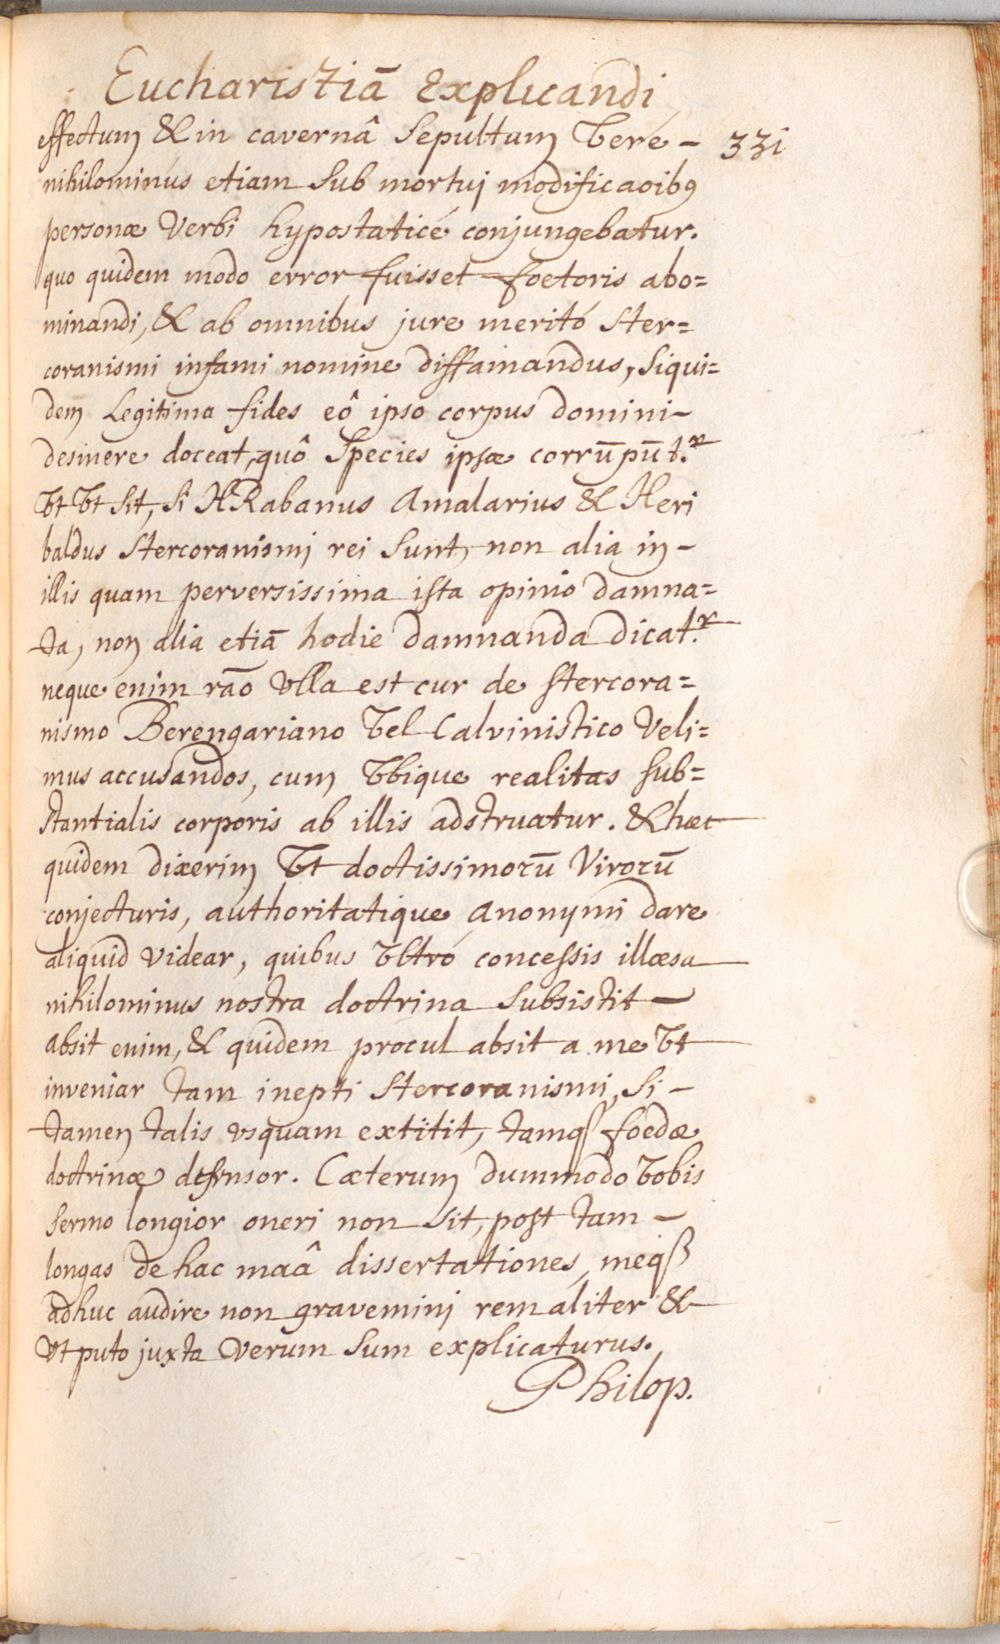 Eucharistiā Explicandi
effectum & in cavernâ sepultum veré –
331
nihilominús etiam sub mortuj modificaoibꝰ
personæ Verbi hypostaticé conjungebatur.
quo quidem modo error fuisset foetoris abo=
minandi, & ab omnibus jure meritó ster=
coranismi infami nomine diffamandus, siqui=
dem Legitima fides eô ipso corpus domini –
desinere doceat, quô species ipsæ corrūpūt.r
Vt Vt sit, si HRabanus Amalarius & Heri
baldus stercoranismj rei sunt, non alia in –
illis quam perversissima ista opinio damna=
ta, non alia etiā hodie damnanda dicat.r
neque enim rāo Vlla est cur de stercora=
nismo Berengariano Vel Calvinistico Veli=
mus accusandos, cum Vbique realitas sub=
stantialis corporis ab illis adstruatur. & hæc
quidem dixerim Vt doctissimorū Virorū
conjecturis, authoritatique Anonymi dare
aliquid videar, quibus Vltró concessis illæsa
nihilominus nostra doctrina subsistit –
absit enim, & quidem procul absit a me Vt
inveniar tam inepti stercoranismi, si –
tamen talis vsquam extitit, tamqꝫ foedæ
doctrinæ defensor. Cæterum dummodo Vobis
sermo longior oneri non sit, post tam –
longas de hac maâ dissertationes, meqꝫ
adhuc audire non gravemini rem aliter &
Vt puto juxta Verum sum explicaturus.
Philop.